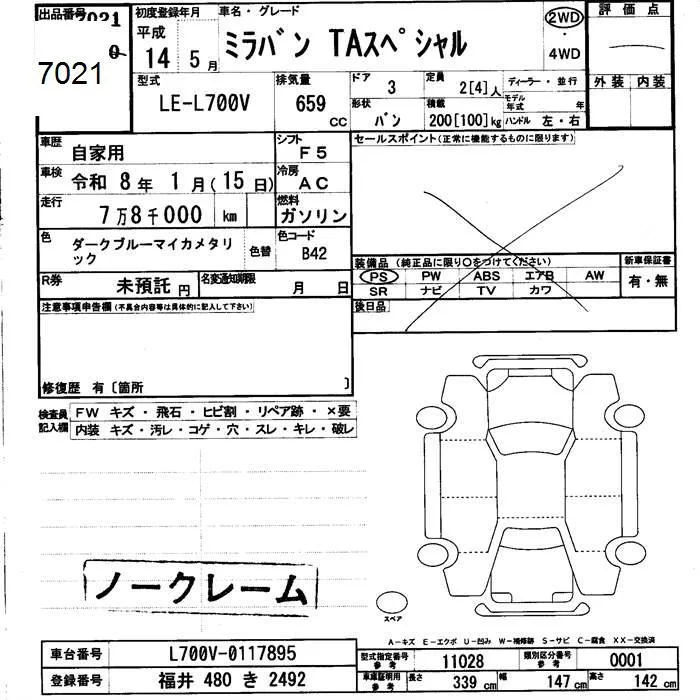 出品番号 7021
7021
初度登録年月 車名・グレード
平成
14 5月 ミラバン TAスペシャル
2WD
・
4WD
評 価 点
外装 内装
型式 排気量 ドア 3 定員 2[4]人 ディーラー・並行
LE-L700V 659 CC 形状 バン 積載 200[100]kg モデル年式 年
ハンドル 左・右
車歴 自家用 シフト F5
セールスポイント(正常に機能するものに限ります)
車検 令和 8年 1月(15日) 冷房 AC
走行 7万8千000 km 燃料 ガソリン
色 ダークブルーマイカメタリック 色替 色コード B42
装備品(純正品に限り○をつけてください) 新車保証書
PS PW ABS エアB AW 有・無
SR ナビ TV カワ
R券 未預託 円 名変通知期限 月 日
後日品
注意事項申告欄(不具合内容等は具体的に記入して下さい)
修復歴 有〔箇所 〕
検査員記入欄 FW キズ・飛石・ヒビ割・リペア跡・×要
内装 キズ・汚レ・コゲ・穴・スレ・キレ・破レ
ノークレーム
スペア
A-キズ E-エクボ U-凹み W-補修跡 S-サビ C-腐食 XX-交換済
車台番号 L700V-0117895 型式指定番号 参考 11028 類別区分番号 参考 0001
登録番号 福井 480 き 2492 車庫証明用 参考 長さ 339cm 幅 147cm 高さ 142cm